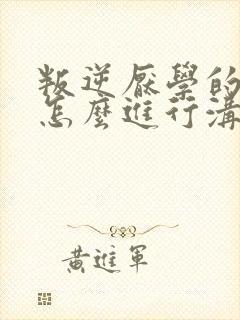 叛逆厭學的
怎麼進行溝
黃進軍